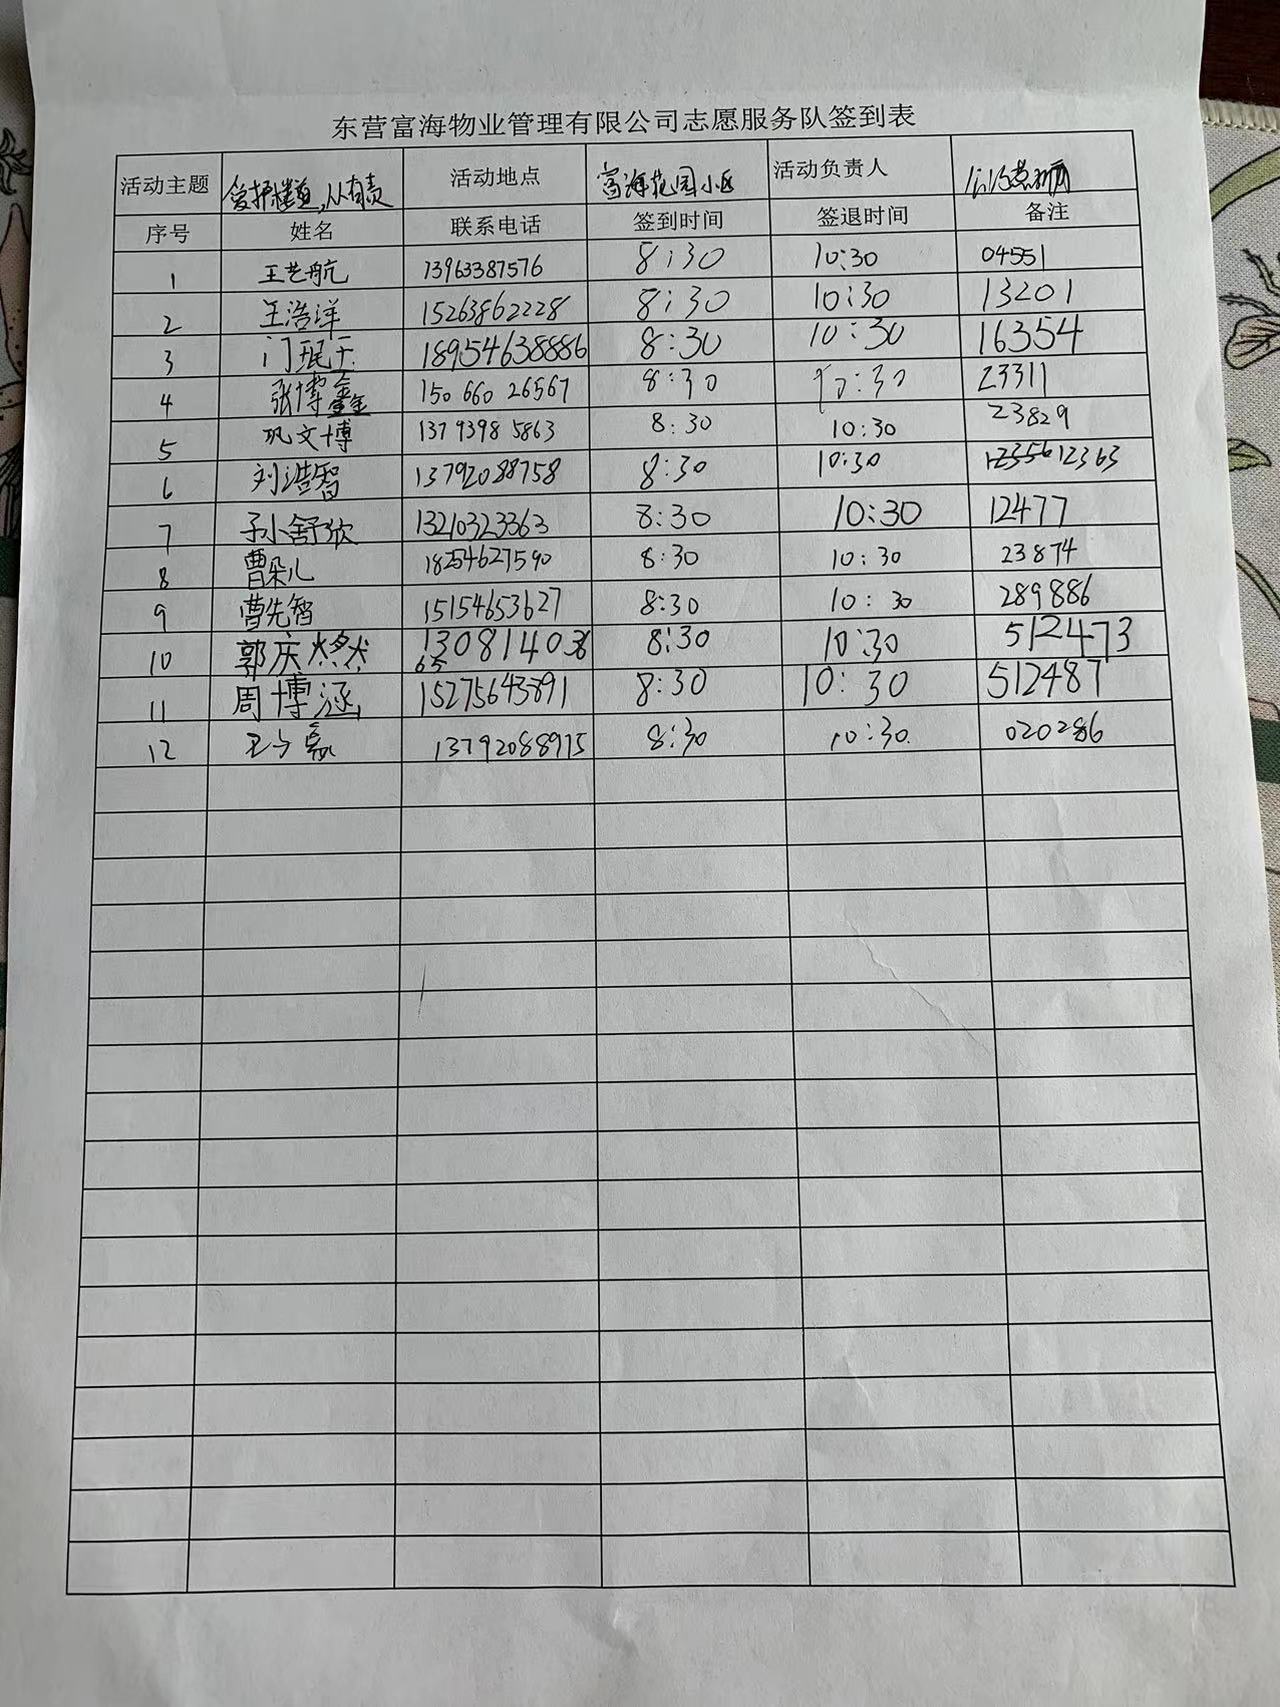 东营富海物业管理有限公司志愿服务队签到表
活动主题 爱护楼道,人人有责 活动地点 富海花园小区 活动负责人
序号 姓名 联系电话 签到时间 签退时间 备注
1 王艺航 13963387576 8:30 10:30 04551
2 王浩洋 15263862228 8:30 10:30 13201
3 门珉干 18954638886 8:30 10:30 16354
4 张博鑫 150 660 26567 8:30 10:30 23311
5 巩文博 137 9398 5863 8:30 10:30 23829
6 刘浩智 13792088758 8:30 10:30 12363
7 孙舒欣 13210323363 8:30 10:30 12477
8 曹朵儿 18254627590 8:30 10:30 23874
9 曹先智 15154653627 8:30 10:30 289886
10 郭庆燃 8:30 10:30 512473
11 周博涵 15275643891 8:30 10:30 512487
12 王子豪 13792088975 8:30 10:30 020286